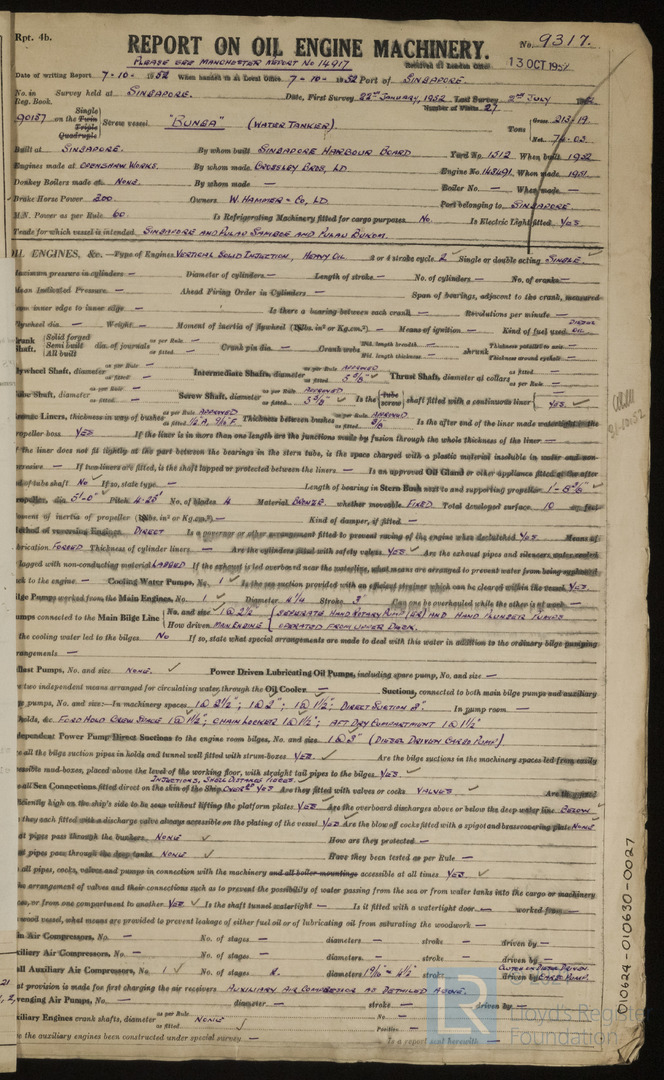 Rpt. 4b.
No. 9317.
REPORT ON OIL ENGINE MACHINERY.
PLEASE SEE MANCHESTER REPORT No 14917
Received at London Office 13 OCT 1952
Date of writing Report 7-10-1952 When handed in at Local Office 7-10-1952 Port of SINGAPORE.
No. in Reg. Book. Survey held at SINGAPORE. Date, First Survey 22nd JANUARY, 1952 Last Survey 2nd JULY 1952
Number of Visits 27
90157 on the Single Twin Triple Quadruple Screw vessel "BUNGA" (WATER TANKER). Tons Gross 213.19. Net 76.03.
Built at SINGAPORE. By whom built SINGAPORE HARBOUR BOARD Yard No. 1312 When built 1952
Engines made at OPENSHAW WORKS. By whom made CROSSLEY BROS, LD Engine No. 143491. When made 1951.
Donkey Boilers made at NONE. By whom made — Boiler No. — When made —
Brake Horse Power 300 Owners W. HAMMER & CO, LD. Port belonging to SINGAPORE.
M.N. Power as per Rule 60. Is Refrigerating Machinery fitted for cargo purposes No. Is Electric Light fitted YES.
Trade for which vessel is intended SINGAPORE AND PULAU SAMBOE AND PULAU BUKOM.
OIL ENGINES, &c. —Type of Engines VERTICAL SOLID INJECTION, HEAVY OIL 2 or 4 stroke cycle 2 Single or double acting SINGLE.
Maximum pressure in cylinders — Diameter of cylinders — Length of stroke — No. of cylinders — No. of cranks —
Mean Indicated Pressure — Ahead Firing Order in Cylinders — Span of bearings, adjacent to the crank, measured
from inner edge to inner edge — Is there a bearing between each crank — Revolutions per minute —
Flywheel dia. — Weight — Moment of inertia of flywheel (lbs. in² or Kg.cm.²) — Means of ignition — Kind of fuel used DIESEL OIL
Crank Shaft, Solid forged Semi built All built dia. of journals as per Rule — as fitted — Crank pin dia. — Crank webs Mid. length breadth — Mid. length thickness — shrunk Thickness parallel to axis — Thickness around eyehole —
Flywheel Shaft, diameter as per Rule — as fitted — Intermediate Shafts, diameter as per Rule APPROVED as fitted 5 5/8" Thrust Shaft, diameter at collars as per Rule — as fitted —
Tube Shaft, diameter as per Rule — as fitted — Screw Shaft, diameter as per Rule APPROVED as fitted 5 5/8" Is the tube screw shaft fitted with a continuous liner YES.
Bronze Liners, thickness in way of bushes as per Rule APPROVED as fitted 1/2 A, 9/16 F Thickness between bushes as per Rule APPROVED as fitted Is the after end of the liner made watertight in the
propeller boss YES If the liner is in more than one length are the junctions made by fusion through the whole thickness of the liner —
If the liner does not fit tightly at the part between the bearings in the stern tube, is the space charged with a plastic material insoluble in water and non-
corrosive — If two liners are fitted, is the shaft lapped or protected between the liners — Is an approved Oil Gland or other appliance fitted at the after
end of tube shaft No If so, state type. — Length of bearing in Stern Bush next to and supporting propeller 1'-8 5/8"
Propeller, dia. 5'-0" Pitch 4.25' No. of blades 4 Material BRONZE. whether moveable FIXED. Total developed surface 10 sq. feet
Moment of inertia of propeller (lbs. in² or Kg.cm.²) — Kind of damper, if fitted —
Method of reversing Engines DIRECT Is a governor or other arrangement fitted to prevent racing of the engine when declutched YES. Means of
lubrication FORCED Thickness of cylinder liners — Are the cylinders fitted with safety valves YES Are the exhaust pipes and silencers water cooled
or lagged with non-conducting material LAGGED If the exhaust is led overboard near the waterline, what means are arranged to prevent water from being syphoned
back to the engine — Cooling Water Pumps, No. 1 Is the sea suction provided with an efficient strainer which can be cleared within the vessel YES.
Bilge Pumps worked from the Main Engines, No. 1 Diameter 2 1/4 Stroke 3" Can one be overhauled while the other is at work —
Pumps connected to the Main Bilge Line No. and size 1 @ 2 1/2 How driven MAIN ENGINE SEPERATE HAND ROTARY PUMP (ER) AND HAND PLUNGER PUMPS OPERATED FROM UPPER DECK.
Is the cooling water led to the bilges. No If so, state what special arrangements are made to deal with this water in addition to the ordinary bilge pumping
arrangements —
Ballast Pumps, No. and size NONE. Power Driven Lubricating Oil Pumps, including spare pump, No. and size —
Are two independent means arranged for circulating water through the Oil Cooler — Suctions, connected to both main bilge pumps and auxiliary
bilge pumps, No. and size:—In machinery spaces 1 @ 2 1/2"; 1 @ 2"; 1 @ 1 1/2"; DIRECT SUCTION 3". In pump room. —
In holds, &c. FORD HOLD CREW SPACE 1 @ 1 1/2"; CHAIN LOCKER 1 @ 1 1/2"; AFT DRY COMPARTMENT 1 @ 1 1/2"
Independent Power Pump Direct Suctions to the engine room bilges, No. and size 1 @ 3" (DIESEL DRIVEN CARGO PUMP)
Are all the bilge suction pipes in holds and tunnel well fitted with strum-boxes YES. Are the bilge suctions in the machinery spaces led from easily
accessible mud-boxes, placed above the level of the working floor, with straight tail pipes to the bilges. YES.
INJECTIONS, SHELL DISTANCE PIECES
Are all Sea Connections fitted direct on the skin of the ship. YES Are they fitted with valves or cocks VALVES Are they fixed
sufficiently high on the ship's side to be seen without lifting the platform plates YES Are the overboard discharges above or below the deep water line BELOW
Are they each fitted with a discharge valve always accessible on the plating of the vessel YES Are the blow off cocks fitted with a spigot and brass covering plate NONE
What pipes pass through the bunkers. NONE How are they protected —
What pipes pass through the deep tanks. NONE Have they been tested as per Rule —
Are all pipes, cocks, valves and pumps in connection with the machinery and all boiler mountings accessible at all times YES.
Is the arrangement of valves and their connections such as to prevent the possibility of water passing from the sea or from water tanks into the cargo or machinery
spaces, or from one compartment to another YES Is the shaft tunnel watertight — Is it fitted with a watertight door. — worked from —
If a wood vessel, what means are provided to prevent leakage of either fuel oil or of lubricating oil from saturating the woodwork —
Main Air Compressors, No. — No. of stages — diameters — stroke — driven by —
Auxiliary Air Compressors, No. — No. of stages — diameters. — stroke — driven by —
Small Auxiliary Air Compressors, No. 1 No. of stages 2. diameters stroke driven by CLUTCH ON DIESEL DRIVEN CARGO PUMP.
What provision is made for first charging the air receivers AUXILIARY AIR COMPRESSOR AS DETAILED ABOVE.
Scavenging Air Pumps, No. — diameter — stroke — driven by —
Auxiliary Engines crank shafts, diameter as per Rule as fitted NONE No. — Position —
Have the auxiliary engines been constructed under special survey — Is a report sent herewith —
010624-010630-0027
LR
Lloyd's Register
Foundation